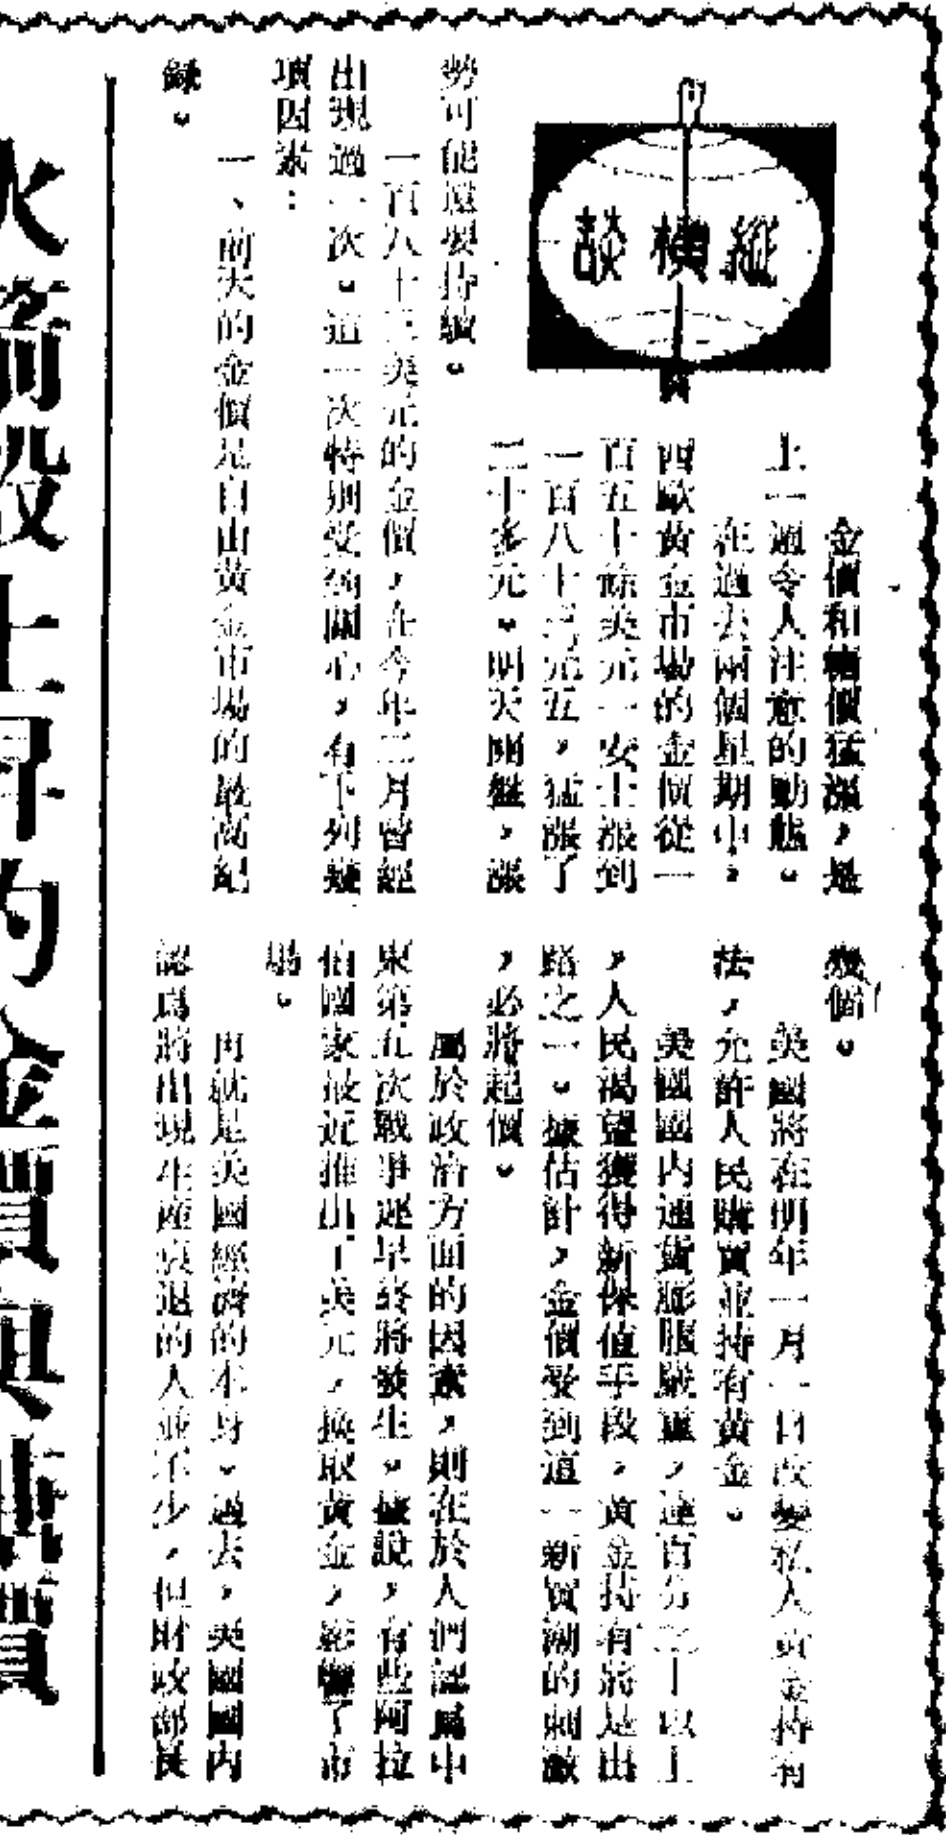 縱橫談
金價和糖價猛漲,是
上一週令人注意的動態。
在過去兩個星期中,
西歐黃金市場的金價從一
百五十餘美元一安士漲到
一百八十三元五,猛漲了
二十多元。明天開盤,漲
勢可能還要持續。
一百八十三美元的金價,在今年二月曾經
出現過一次。這一次特別受到關心,有下列幾
項因素:
一、前天的金價是自由黃金市場的最高紀
錄。
幾個。
美國將在明年一月一日改變私人黃金持有
法,允許人民購買並持有黃金。
美國國內通貨膨脹嚴重,達百分之十以上
,人民渴望獲得新保值手段,黃金持有將是出
路之一。據估計,金價受到這一新買潮的刺激
,必將起價。
屬於政治方面的因素,則在於人們認爲中
東第五次戰爭遲早終將發生。據說,有些阿拉
伯國家最近推出了美元,換取黃金,影響了市
場。
再就是美國經濟的本身。過去,美國國內
認爲將出現生產衰退的人並不少,但財政部長
火箭般上昇的金價與糖價